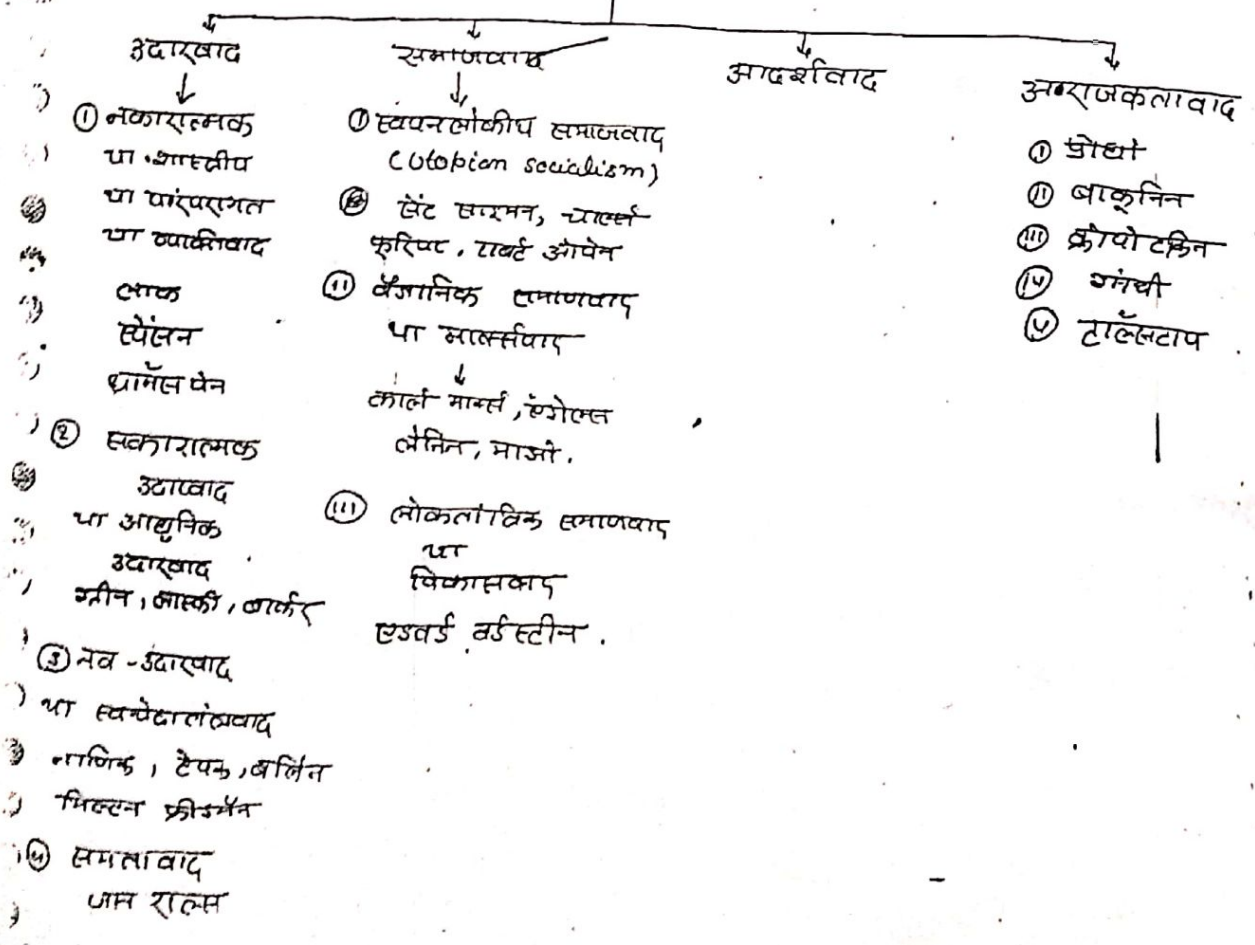 उदारवाद
↓
① नकारात्मक
या शास्त्रीय
या पारंपरागत
या व्यक्तिवाद
लाक
स्पेंसन
थॉमस पेन
② सकारात्मक
उदारवाद
या आधुनिक
उदारवाद
ग्रीन, लास्की, बार्कर
③ नव-उदारवाद
या स्वच्छंदातंत्रवाद
नाजिक, हेयक, बर्लिन
मिल्टन फ्रीडमैन
④ समतावाद
जान राल्स
समाजवाद
↓
① स्वपनलोकीय समाजवाद
(Utopian socialism)
सेंट साइमन, चार्ल्स
फुरियर, राबर्ट ओवेन
(ii) वैज्ञानिक समाजवाद
या मार्क्सवाद
↓
कार्ल मार्क्स, एंगेल्स
लेनिन, माओ.
(iii) लोकतांत्रिक समाजवाद
या
विकासवाद
एडवर्ड बर्डस्टीन.
आदर्शवाद
अराजकतावाद
(i) प्रोधां
(ii) बाकूनिन
(iii) क्रोपोटकिन
(iv) गांधी
(v) टालॅसटाय